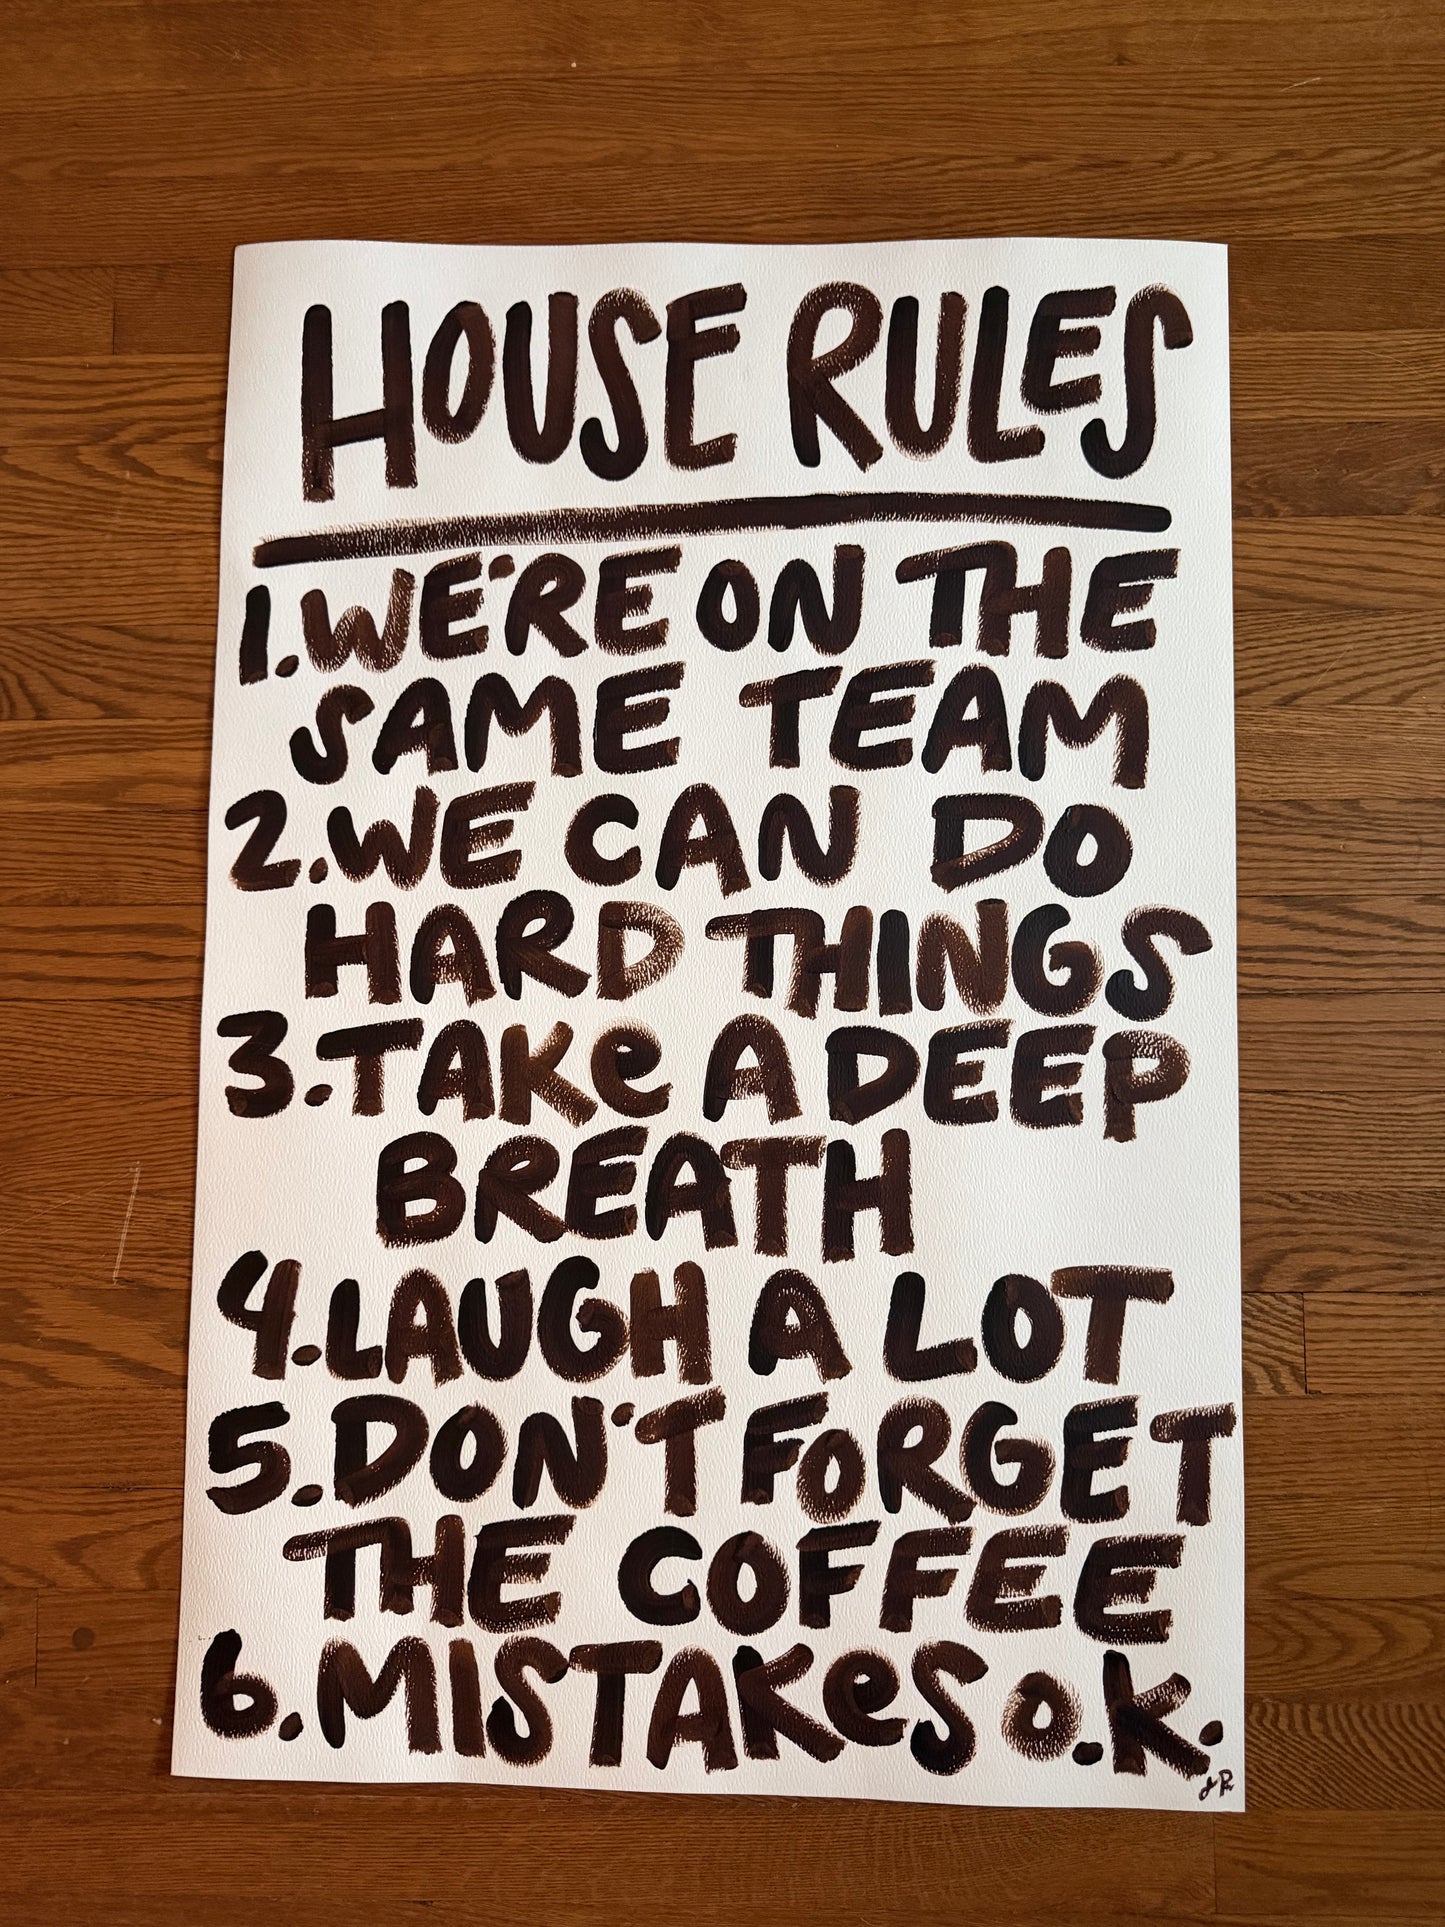 HOUSE RULES
1. WE'RE ON THE
SAME TEAM
2. WE CAN DO
HARD THINGS
3. TAKe A DEEP
BREATH
4. LAUGH A LOT
5. DON'T FORGET
THE COFFEE
6. MISTAKeS O.K.